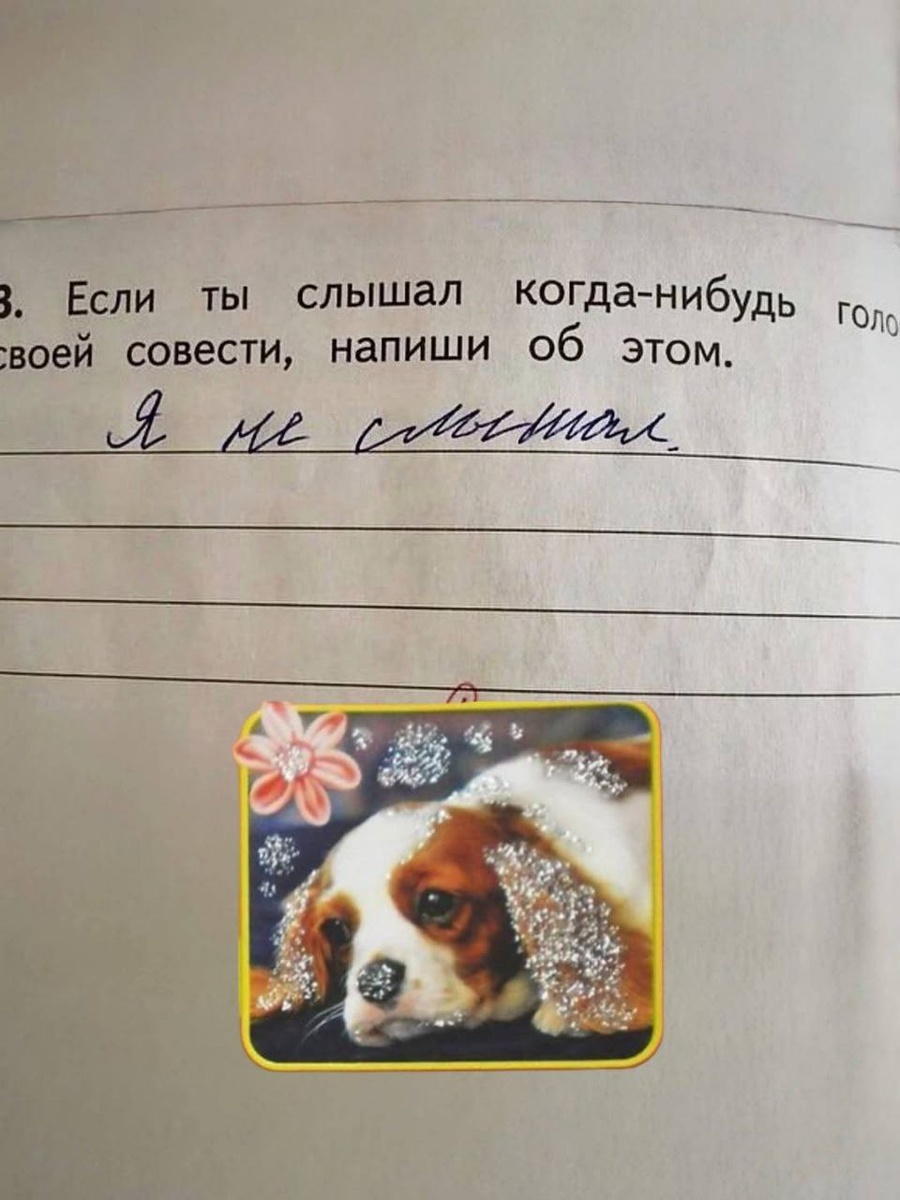 3. Если ты слышал когда-нибудь голо
своей совести, напиши об этом.
Я не слышал.